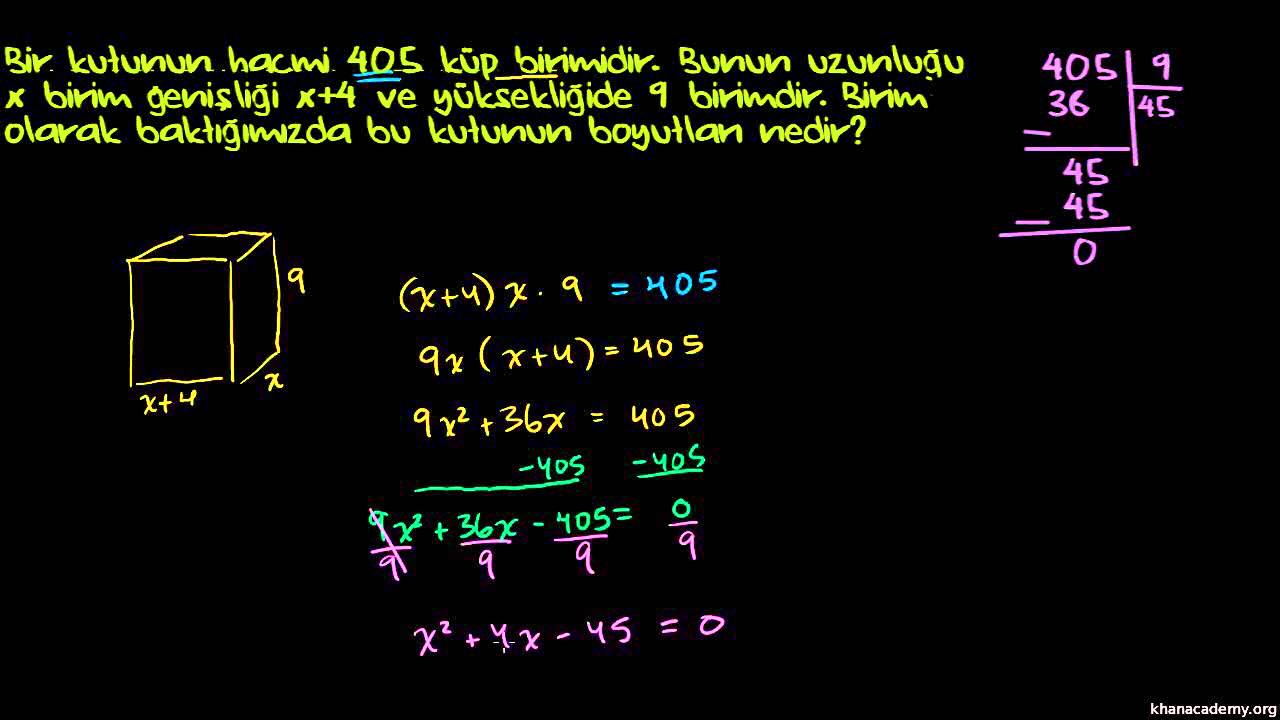 Bir kutunun hacmi 405 küp birimidir. Bunun uzunluğu
x birim genişliği x+4 ve yüksekliğide 9 birimdir. Birim
olarak baktığımızda bu kutunun boyutları nedir?
405 9
36 45
-
45
- 45
0
9
x
x+4
(x+4) x · 9 = 405
9x (x+4) = 405
9x² + 36x = 405
-405 -405
9x² + 36x - 405 = 0
9 9 9 9
x² + 4x - 45 = 0
khanacademy.org